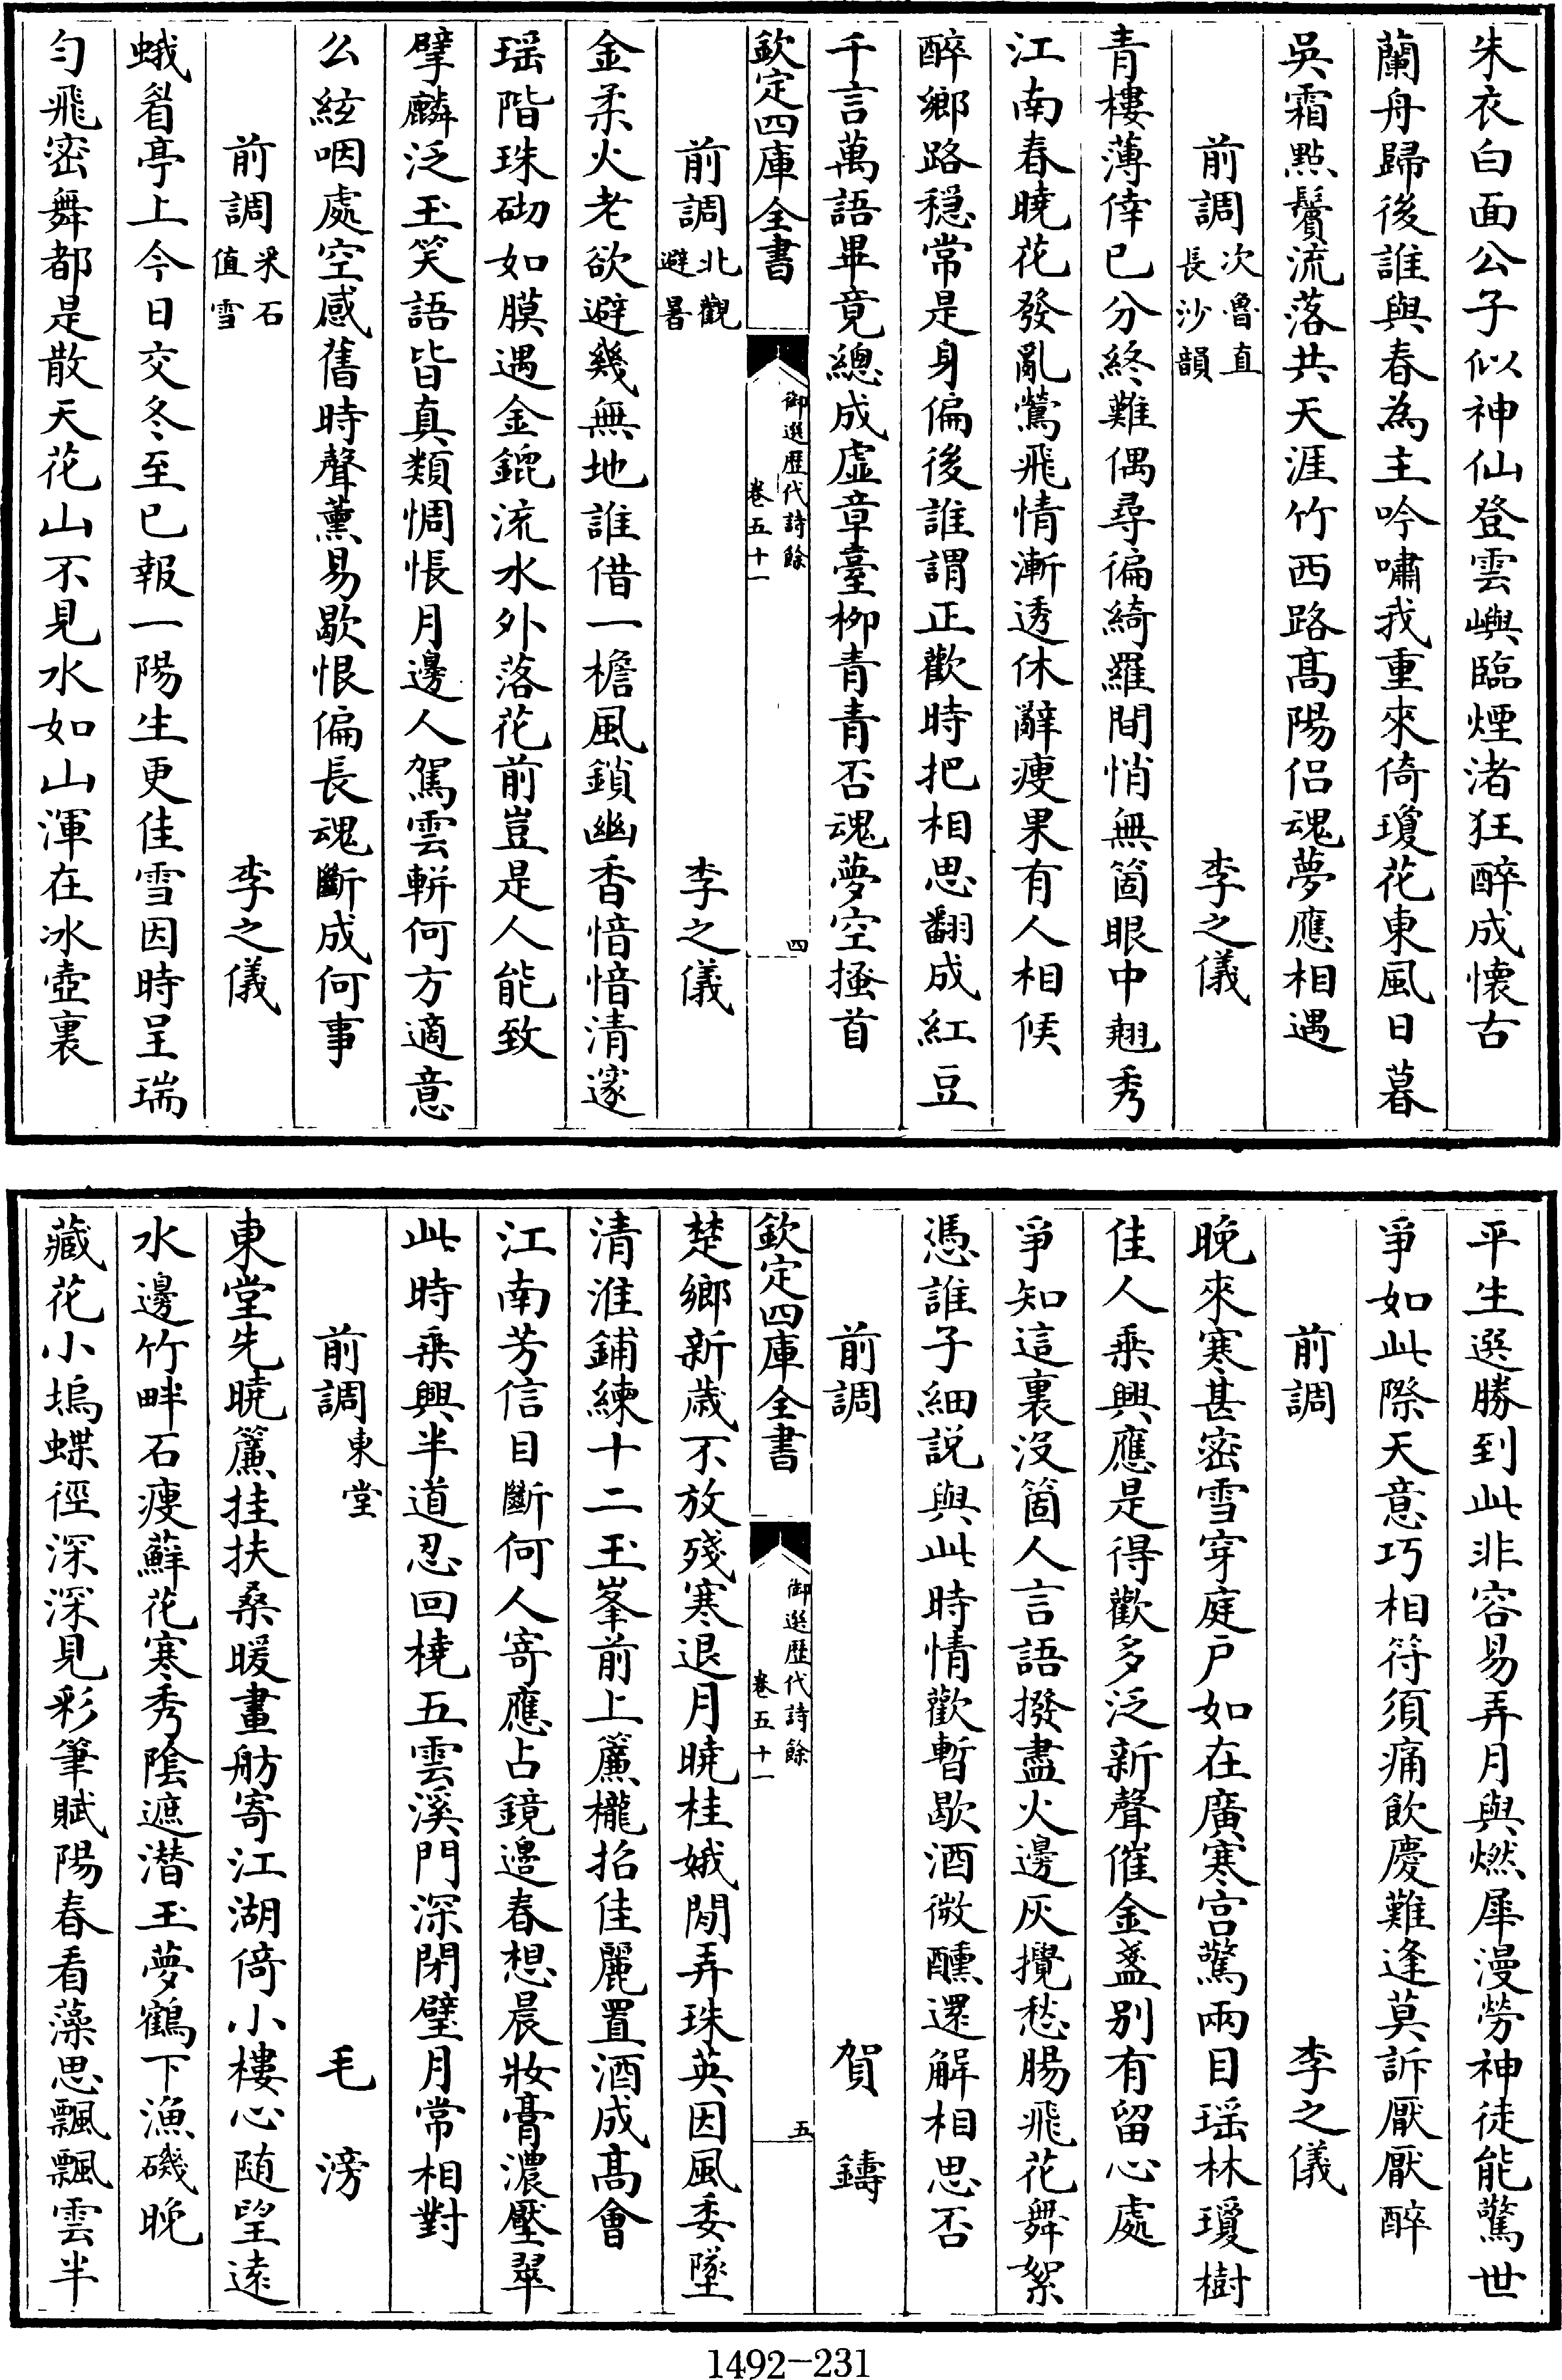 朱衣白面公子似神仙登雲嶼臨煙渚狂醉成懐古
蘭舟歸後誰與春為主吟嘯我重來倚瓊花東風日暮
吳霜點鬢流落共天涯竹西路髙陽侣魂夢應相遇
前調次魯直長沙韻 李之儀
青樓薄倖已分終難偶尋徧綺羅間悄無箇眼中翹秀
江南春曉花發亂鶯飛情漸透休辭痩果有人相候
醉鄉路穏常是身偏後誰謂正歡時把相思翻成紅豆
千言萬語畢竟總成虚章臺柳青青否魂夢空搔首
欽定四庫全書 御選歴代詩餘卷五十一 四
前調北觀避暑 李之儀
金柔火老欲避幾無地誰借一檐風鎖幽香愔愔清邃
瑶階珠砌如膜遇金鎞流水外落花前豈是人能致
擘麟泛玉笑語皆真類惆悵月邊人駕雲軿何方適意
么絃咽處空感舊時聲薰易歇恨偏長魂斷成何事
前調采石值雪 李之儀
蛾眉亭上今日交冬至已報一陽生更佳雪因時呈瑞
匀飛密舞都是散天花山不見水如山渾在冰壺裏
平生選勝到此非容易弄月與燃犀漫勞神徒能驚世
爭如此際天意巧相符須痛飲慶難逢莫訴厭厭醉
前調 李之儀
晚來寒甚密雪穿庭户如在廣寒宫驚兩目瑶林瓊樹
佳人乗興應是得歡多泛新聲催金盞别有留心處
爭知這裏没箇人言語撥盡火邊灰攪愁腸飛花舞絮
憑誰子細説與此時情歡暫歇酒微醺還解相思否
前調 賀鑄
欽定四庫全書 御選歴代詩餘卷五十一 五
楚鄉新歳不放殘寒退月曉桂娥閒弄珠英因風委墜
清淮鋪練十二玉峯前上簾櫳招佳麗置酒成髙會
江南芳信目斷何人寄應占鏡邊春想晨妝膏濃壓翠
此時乗興半道忍回橈五雲溪門深閉璧月常相對
前調東堂 毛滂
東堂先曉簾挂扶桑暖畫舫寄江湖倚小樓心随望遠
水邊竹畔石痩蘚花寒秀陰遮潜玉夢鶴下漁磯晚
藏花小塢蝶徑深深見彩筆賦陽春看藻思飄飄雲半
1492-231